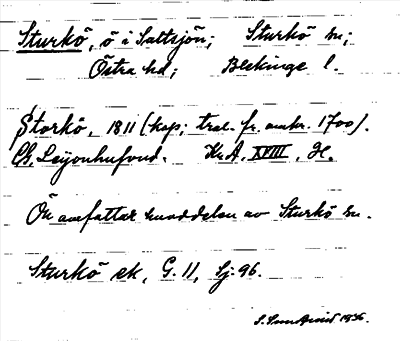 Sturkö, ö i Saltsjön; Sturkö sn;
Östra hd; Blekinge l.
Storkö, 1811 (kop; trol. fr. omkr. 1700).
Ch. Leijonhufvud. Kr.A. XVIII, H.
Ön omfattar huvddelen av Sturkö sn.
Sturkö ek, G. 11, Sj. 96.
S. 1936.